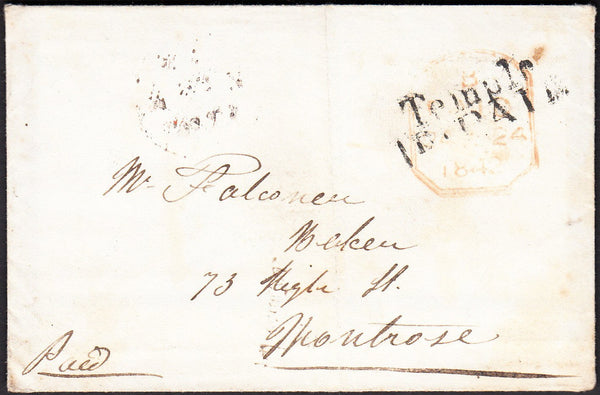 Temple
1D.PAID
24
Mr Falconer
Beker
73 High St.
Montrose
Paid